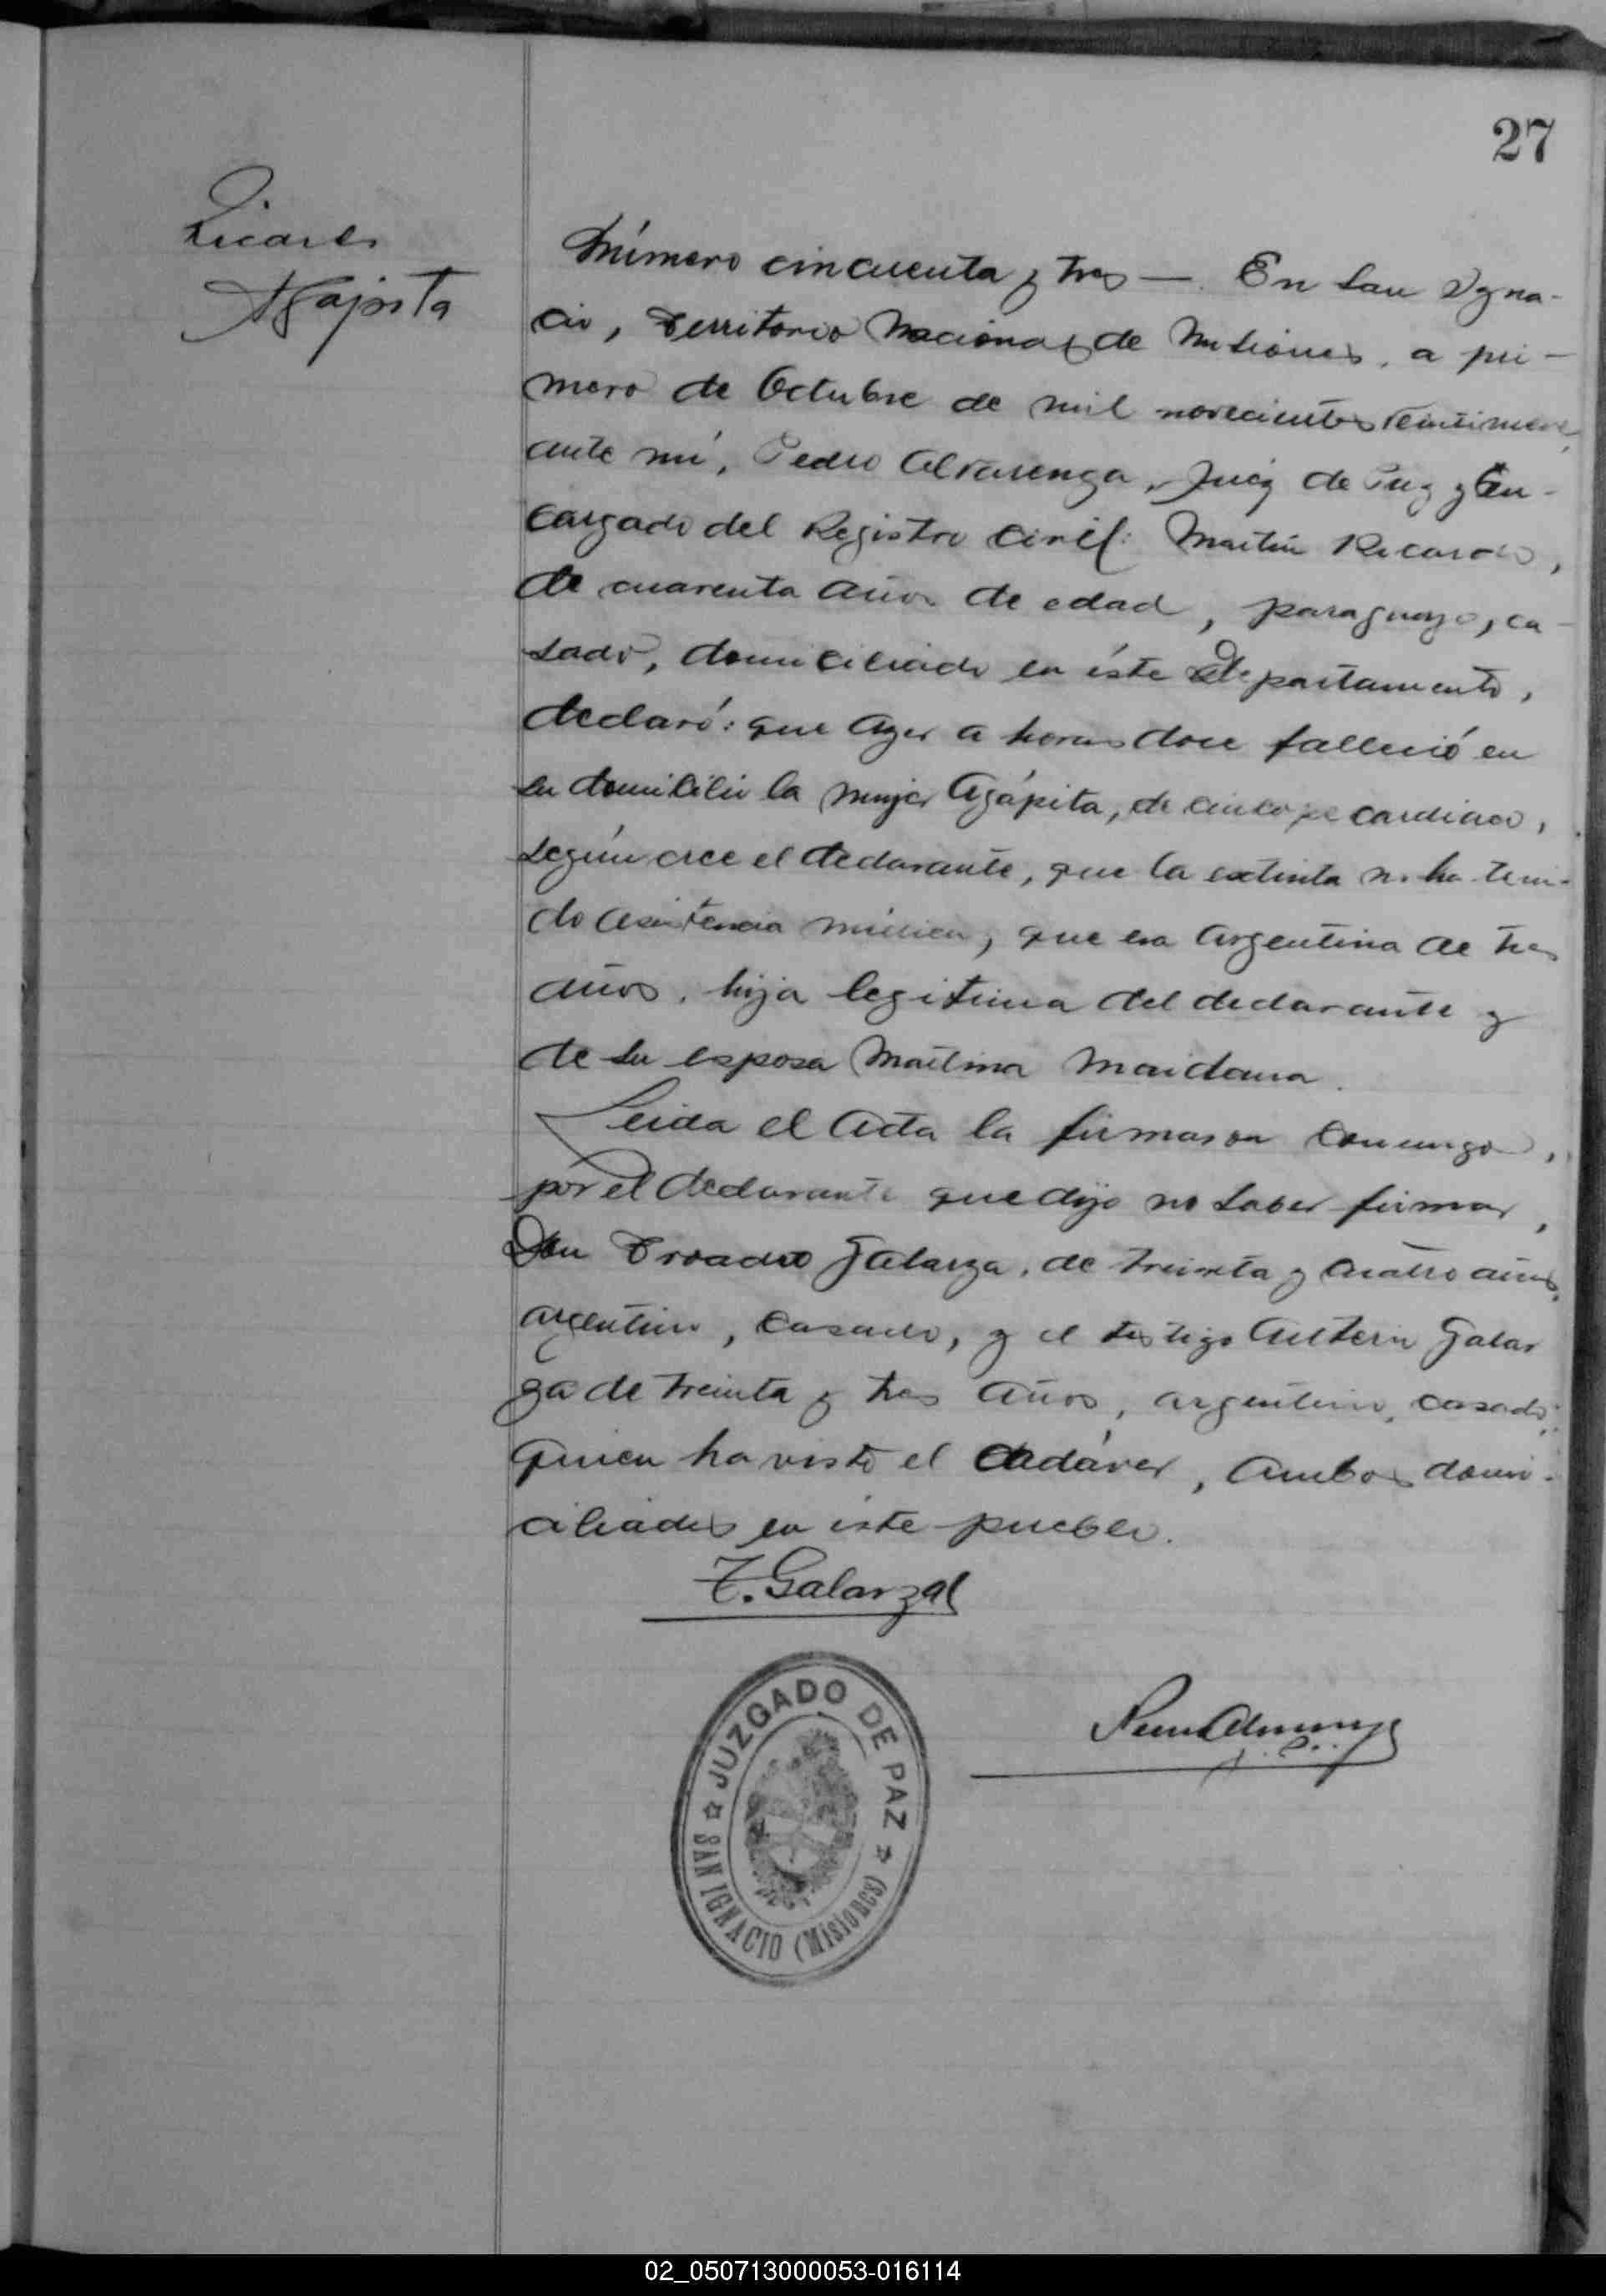 27
Ricardo
Agapita
Número cincuenta y tres —. En San Ygna-
cio, Territorio Nacional de Misiones, a pri-
mero de Octubre de mil novecientos veintinueve,
ante mí, Pedro Alvarenga, Juez de Paz y En-
cargado del Registro Civil: Martín Ricardo,
de cuarenta años de edad, paraguayo, ca-
sado, domiciliado en éste Departamento,
declaró: que ayer a horas doce falleció en
su domicilio la mujer Agápita, de cincope cardiaco,
según cree el declarante, que la extinta no ha teni-
do asistencia médica, que era Argentina de tres
años, hija legitima del declarante y
de su esposa Martina Maidana.
Leida el Acta la firmaron conmigo,
por el declarante que dijo no saber firmar,
Don Troadio Galarza, de treinta y cuatro años,
argentino, casado, y el testigo Galar
za de treinta y tres años, argentino, casado;
quien ha visto el cadáver, ambos domi-
ciliados en éste pueblo.
T. Galarza
JUZGADO DE PAZ
SAN IGNACIO (MISIONES)
02_050713000053-016114